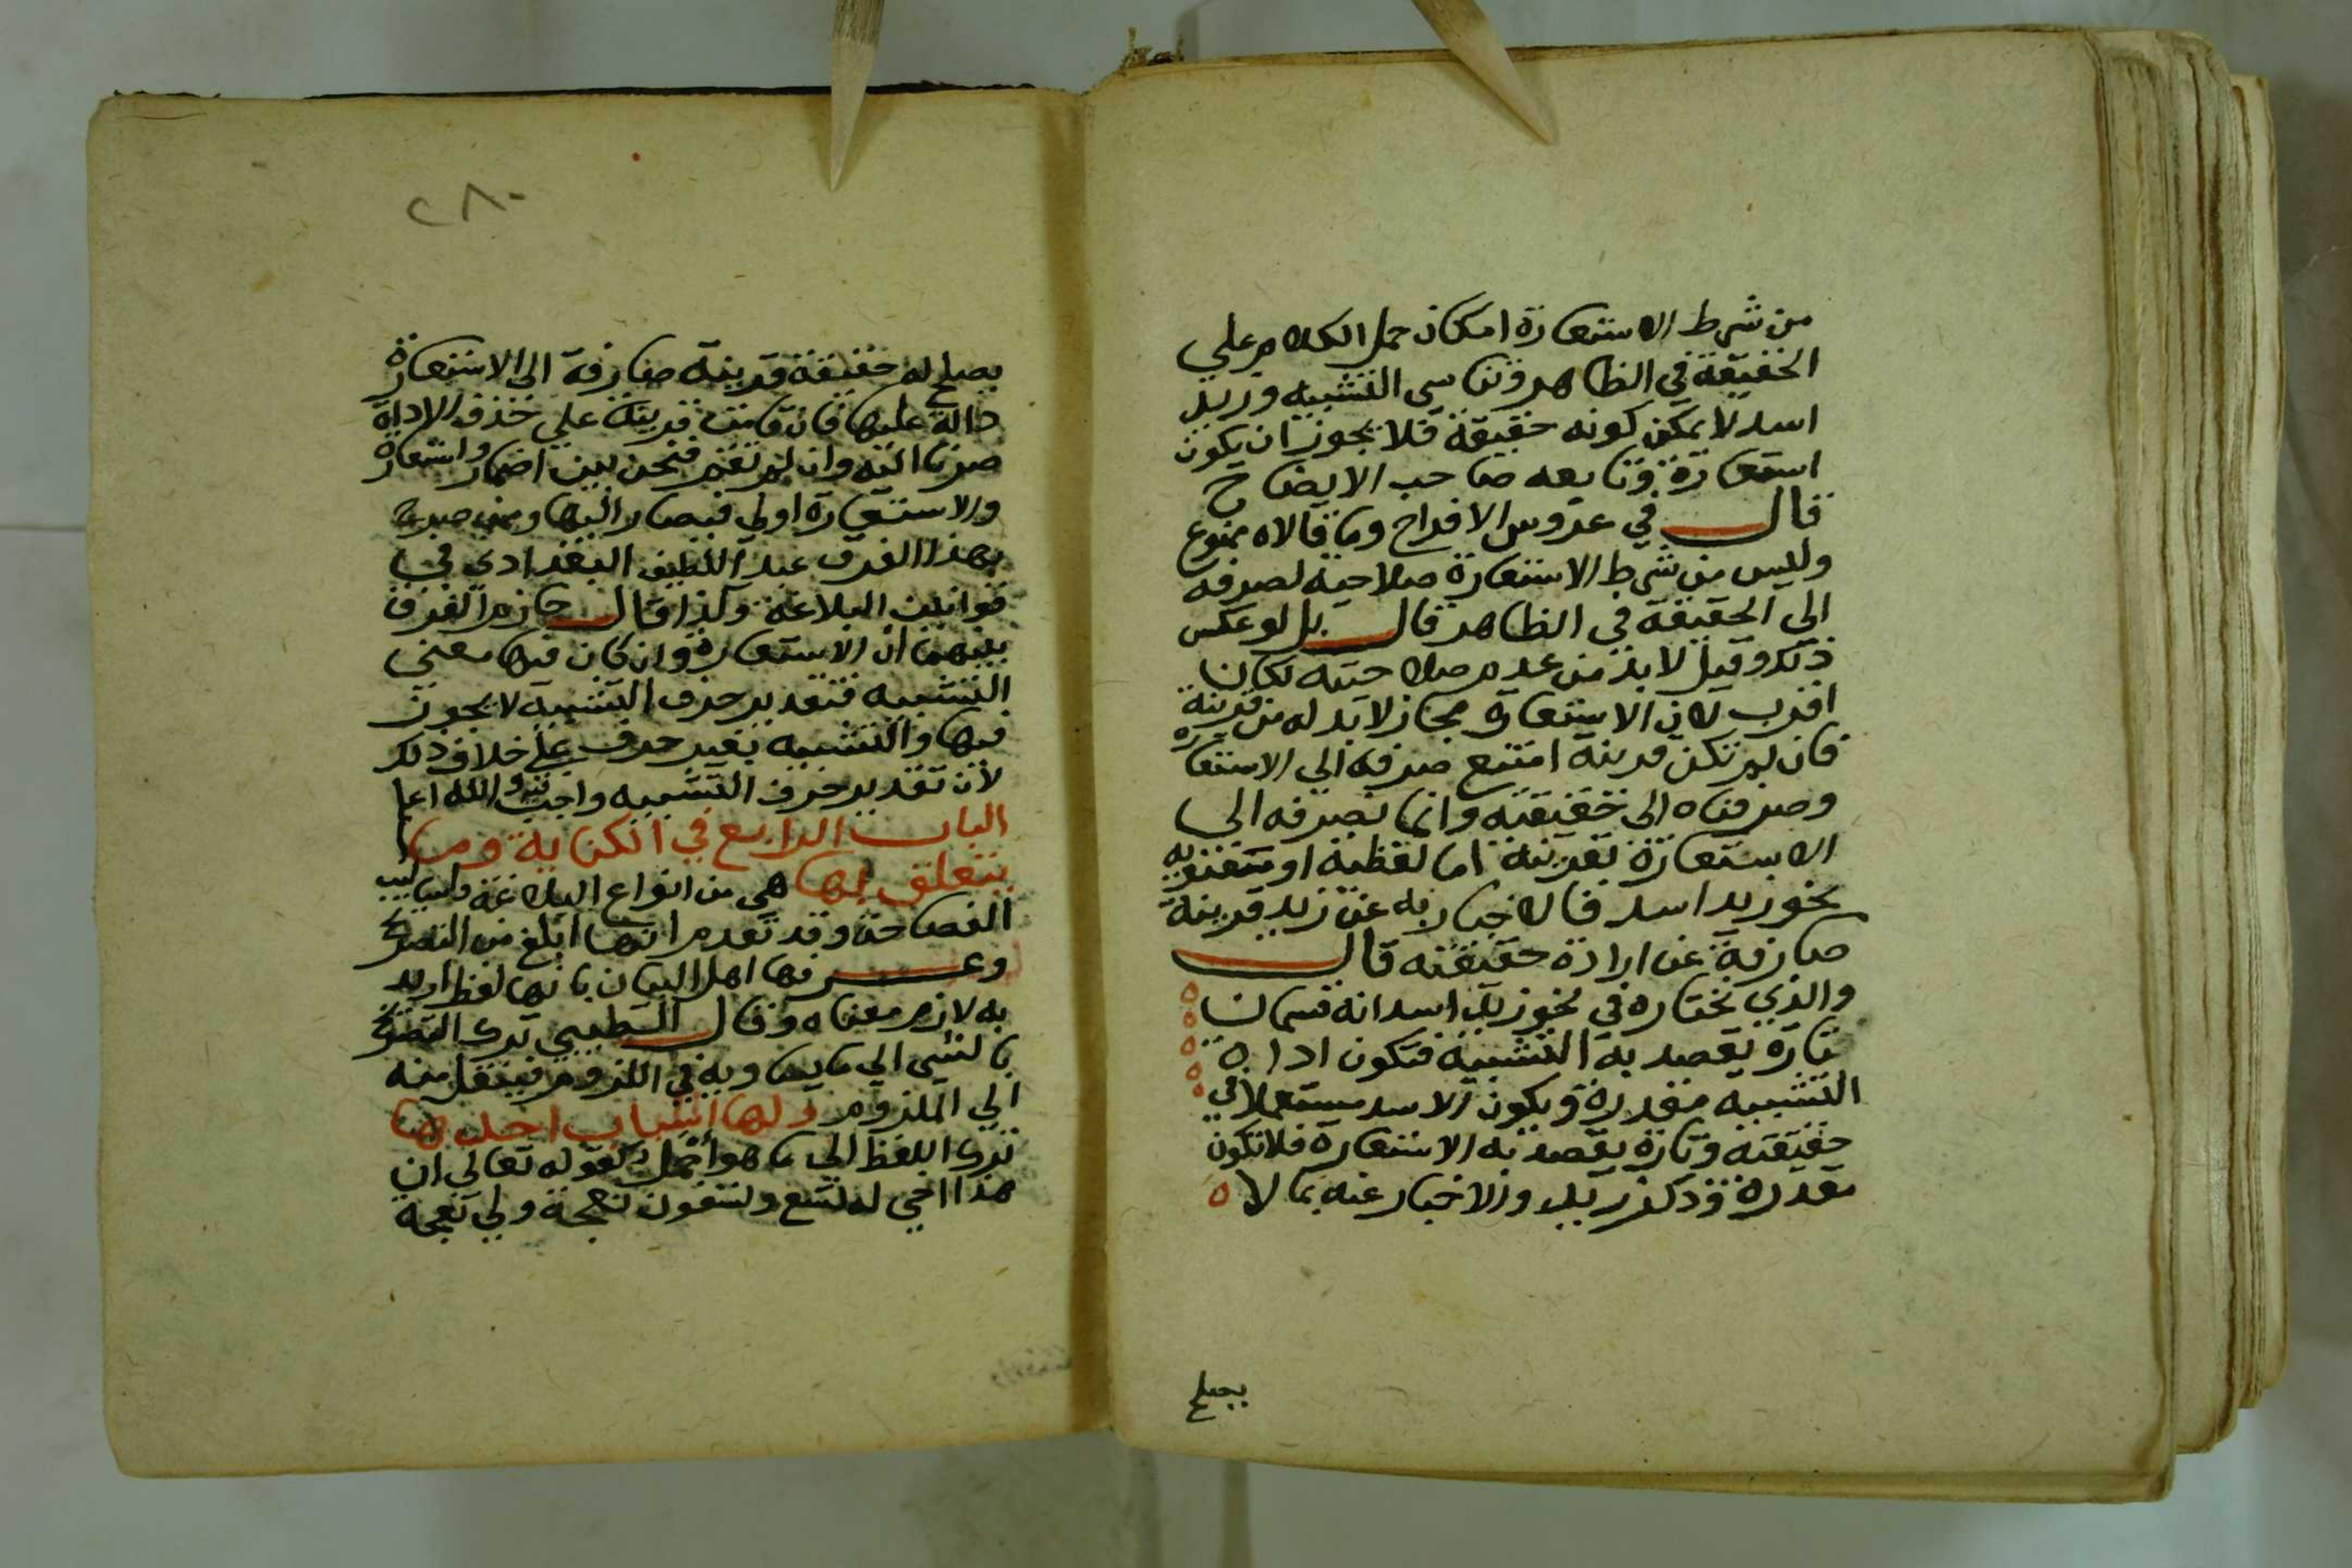 من شرط الاستعارة امكان حمل الكلام علي
الحقيقة في الظاهر وتناسي التشبيه وزيد
اسد لا يمكن كونه حقيقة فلا يجوز ان يكون
استعارة وتابعه صاحب الايضاح
قال في عروس الافراح وما قالاه ممنوع
وليس من شرط الاستعارة صلاحية لصرفه
الي الحقيقة في الظاهر قال بل لو عكس
ذلك وقيل لا بد من عدم صلاحيته لكان
اقرب لان الاستعارة مجاز لا بد له من قرينة
فان لم تكن قرينة امتنع صرفه الي الاستعارة
وصرفناه الي حقيقته وانما نصرفه الي
الاستعارة بقرينة اما لفظية او معنوية
نحو زيد اسد فالاخبار به عن زيد قرينة
صارفة عن ارادة حقيقته قال
والذي نختاره في نحو زيد اسد انه قسمان
تارة يقصد به التشبيه فتكون اداة
التشبيه مقدرة ويكون الاسد مستعملا في
حقيقته وتارة يقصد به الاستعارة فلا تكون
مقدرة وذكر زيد والاخبار عنه بما لا
يصلح
٢٨٠
يصلح له حقيقة قرينة صارفة الي الاستعارة
دالة عليها فان قامت قرينة علي حذف الاداة
صرنا اليه وان لم تقم فنحن بين اضمار واستعارة
والاستعارة اولي فيصار اليها وممن صرح
بهذا الفرق عبد اللطيف البغدادي في
قوانين البلاغة وكذا قال حازم الفرق
بينهما ان الاستعارة وان كان فيها معني
التشبيه فتقدير حرف التشبيه لا يجوز
فيها والتشبيه بغير حرف علي خلاف ذلك
لان تقدير حرف التشبيه واجب فيه والله اعلم
الباب الرابع في الكناية وما
يتعلق بها هي من انواع البلاغة واساليب
الفصاحة وقد تقدم انها ابلغ من التصريح
وعرفها اهل البيان بانها لفظ اريد
به لازم معناه وقال الطيبي ترك التصريح
بالشي الي ما يساويه في اللزوم فينتقل منه
الي الملزوم ولها اسباب احدها
ترك اللفظ الي ما هو اجمل كقوله تعالي ان
هذا اخي له تسع وتسعون نعجة ولي نعجة